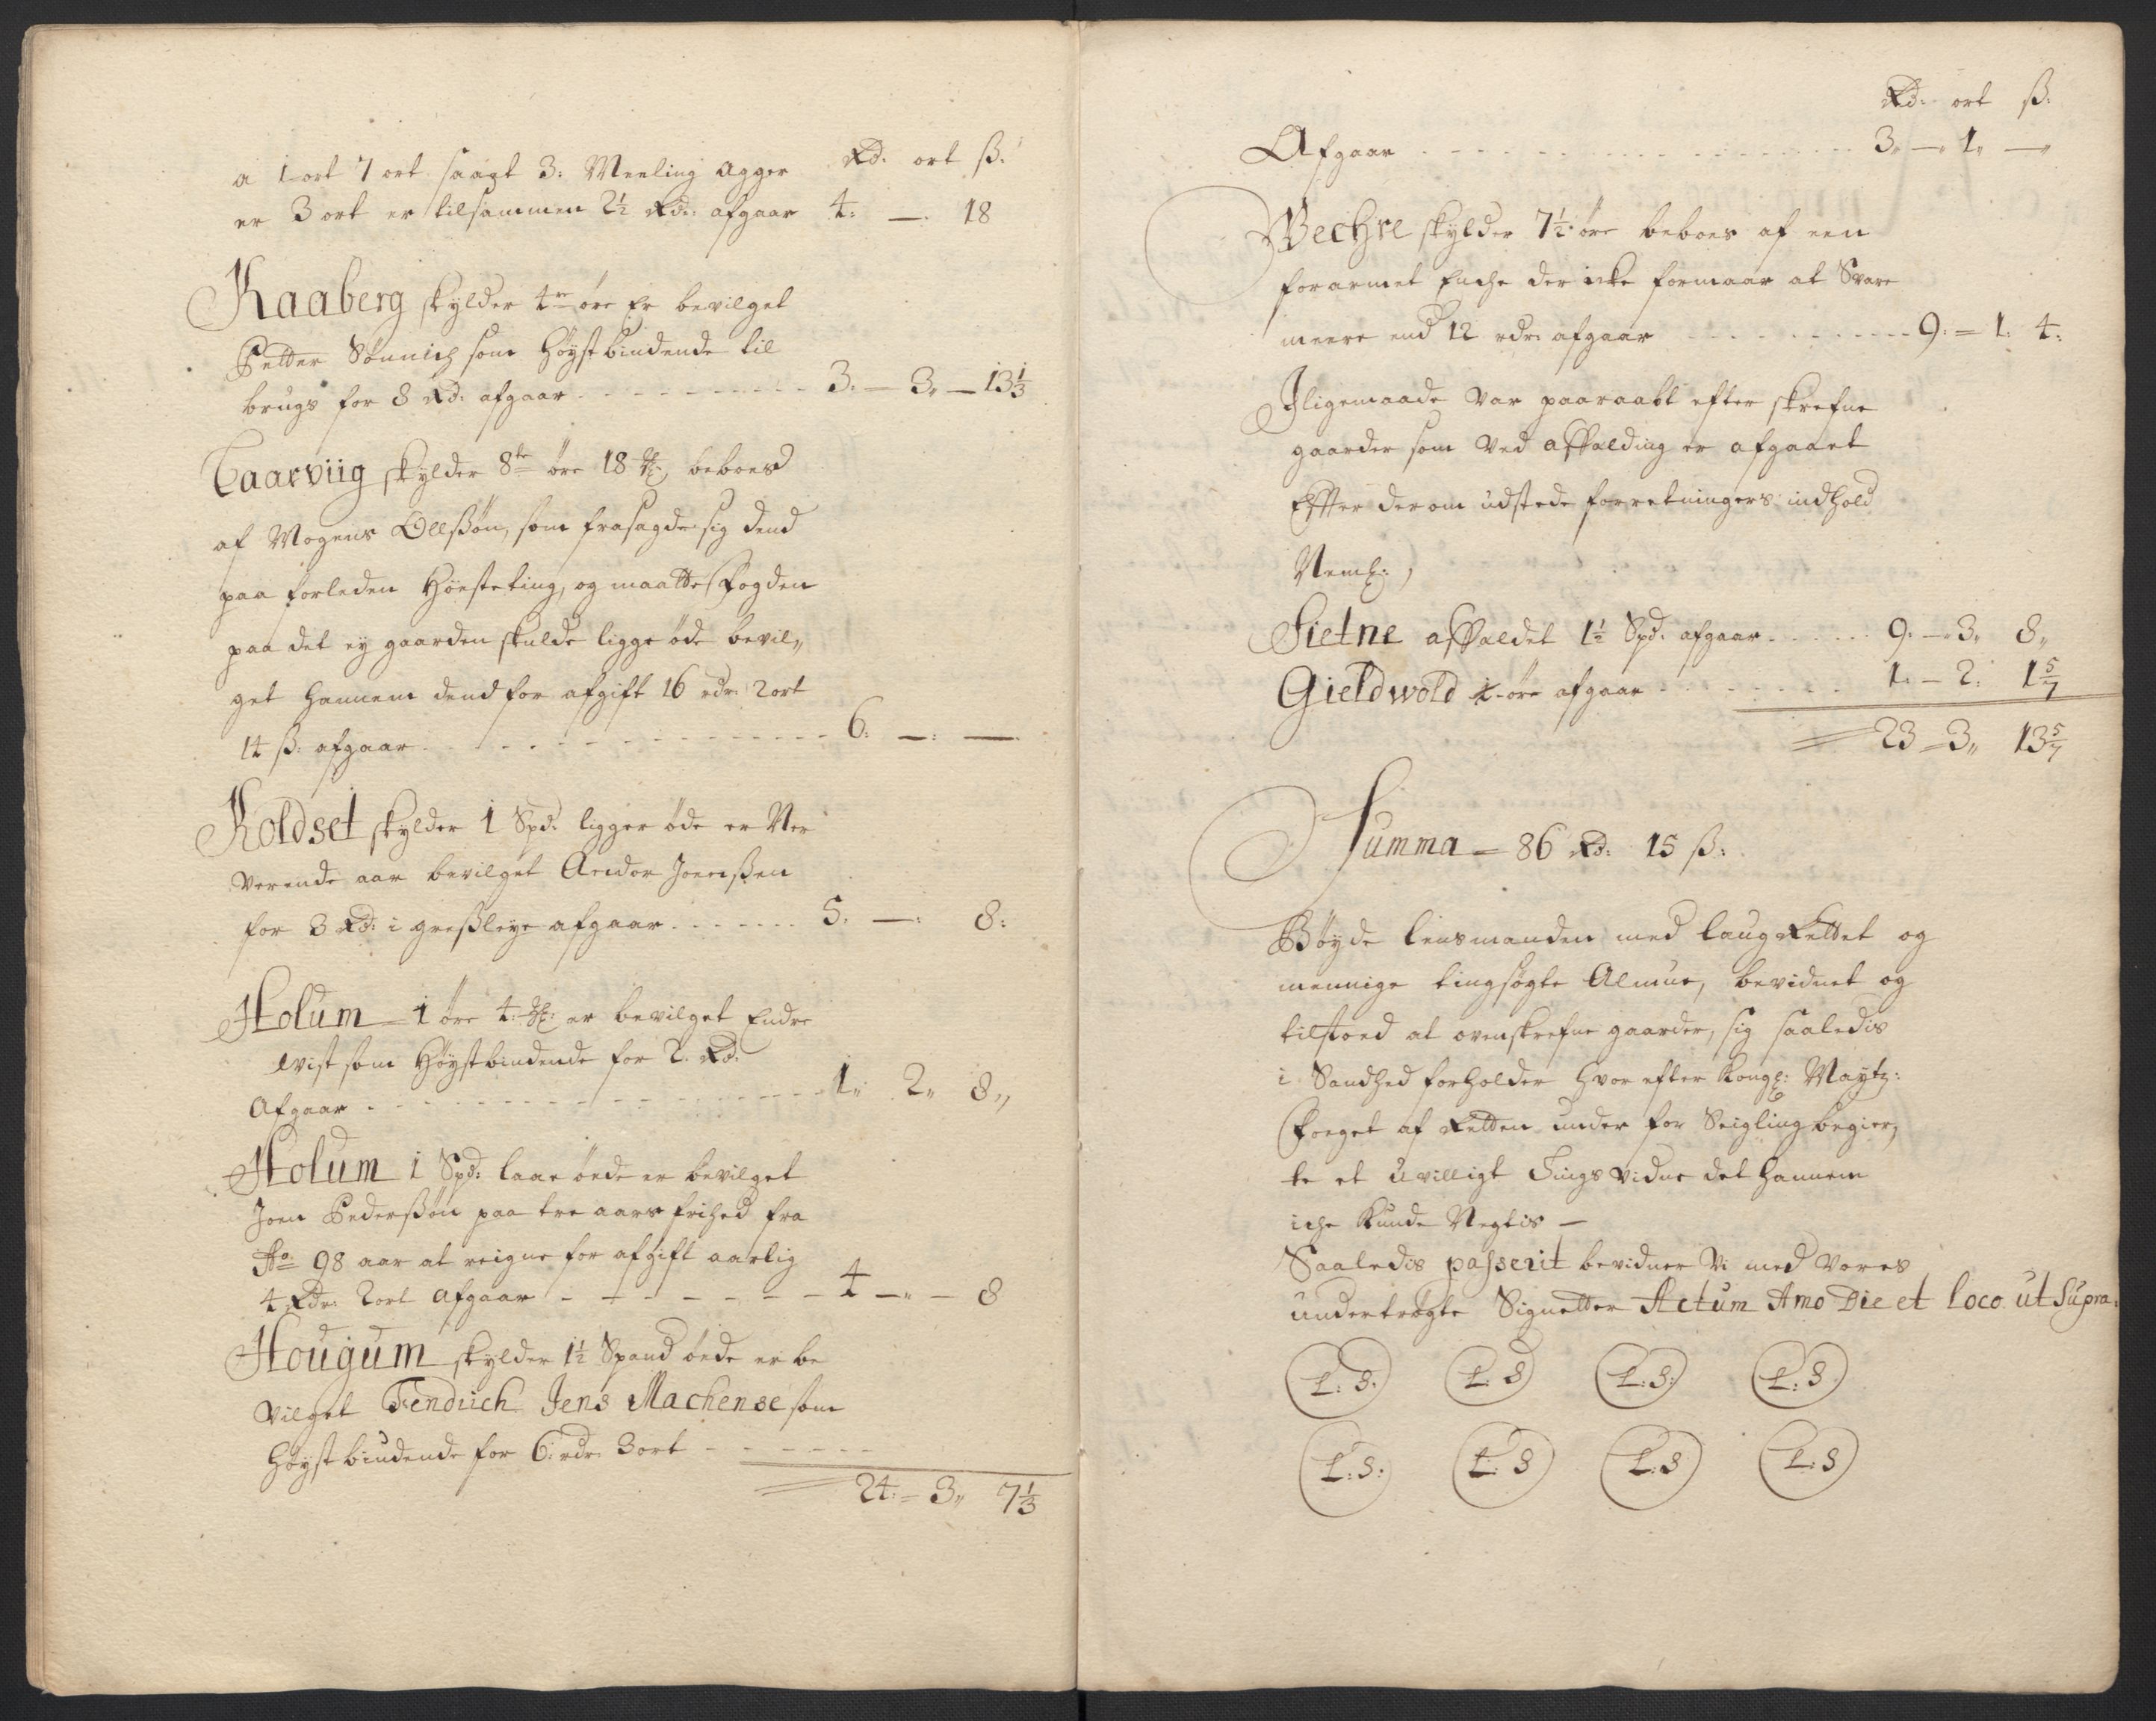 Rd: ort ß:
a 1 ort 7 ort saagt 3: Meeling agger
er 3 ort er tilsammen 2½ Rdr: afgaar 4: —. 18
Raaberg skylder 4re öre Er bevilget
Petter Sönnich som Höystbindende til
brugs for 8 Rd: afgaar 3. — 3„ — 13⅓
Taarviig skylder 8te öre 18 beboed
af Mogens Ollßön, som frasagde sig dend
paa forleden Höysteting, og maatte Fogden
paa det ey gaarden skulde ligge öde bevil„
get hannem dend for afgift 16 rdr: 2 ort
14 ß: afgaar 6: —: —
Koldset skylder 1 Spd: ligger öde er Ner
verende aar bevilget Joenßen
for 3 Rd: i greßleye afgaar 5. —: 8:
Holum 1 öre 4: er bevilget Endre
Wist som Höystbindende for 2. Rd:
Afgaar 1„ 2„ 8„
Holum 1 Spd: laae öede er bevilget
Joen Pederßön paa tre aars frihed fra
Ao: 98 aar at reigne for afgift aarlig
4 Rdr: 2 ort afgaar 4 —„ — 8
Hougum skylder 1½ Spand öede er be
vilget Fendrich Jens Machense som
höystbindende for 6: rdr: 3 ort
24: = 3„ 7⅓
Rd: ort ß:
Afgaar 3„ —„ 1„ —„
Wechre skylder 7½ öre beboes af een
forarmet Enche der icke formaar at Svare
meere end 12 rdr: afgaar 9: = 1: 4:
Iligemaade var paaraabt efter skrefne
gaarder som ved affalding er afgaaet
Effter derom udstede forretningers indhold
Neml:,
Fietne affaldet 1½ Spd: afgaar 9. —„ 3„ 8„
Gieldwold öre afgaar 1. — 2. 1 5/7
23 = 3„ 13 5/7
Summa = 86 Rd: 15 ß:
Böyde lensmanden med laug Rettet og
meenige tingsögte Almue, bevidnet og
tilstoed at ovenskrefne gaarder, sig saaledis
i Sandhed forholder hvor efter Kongl: Maytz:
Foeget af Retten under for Seigling begier„
te et uvilligt Tings vidne det hannem
iche Kunde Negtis —
Saaledis passerit bevidner Vi med vores
undertrögte Signetter Actum Anno Die et loco ut Supra:
L: S: L: S L: S: L: S
L: S: L: S L: S L: S